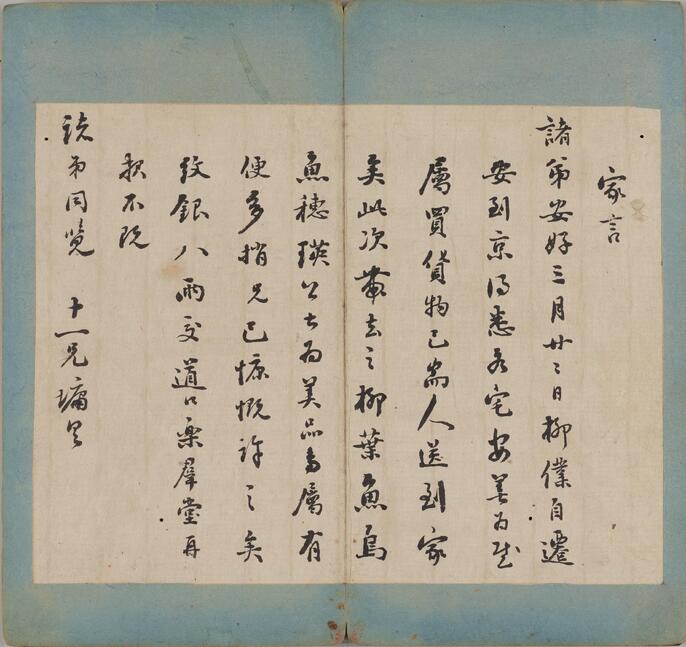 家言
諸弟安好三月廿二日柳僕自遷
安到京得悉各宅安善為慰
屬買貨物已耑人送到家
矣此次帶去之柳葉魚烏
魚穗瑛公士為美品多屬有
便多捎兄已慷慨許之矣
致銀八兩交道口樂群堂再
款不既
諸弟同覽 十一兄墉具